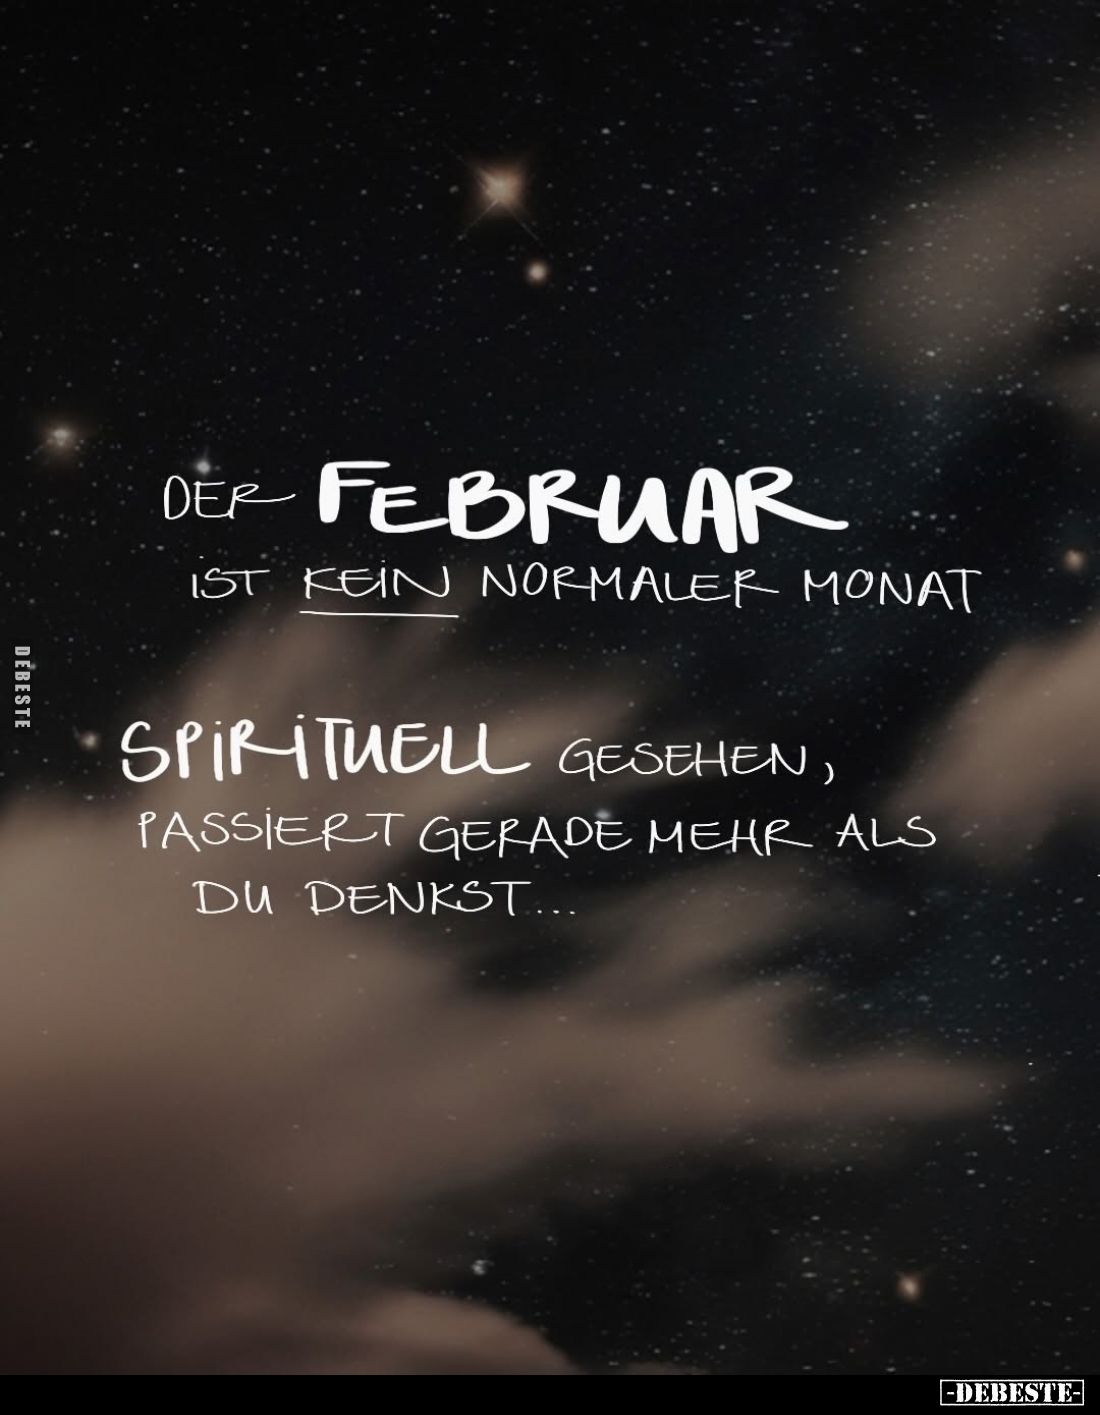 DER FEBRUAR
IST KEIN NORMALER MONAT
SPIRITUELL GESEHEN,
PASSIERT GERADE MEHR ALS
DU DENKST...
DEBESTE
-DEBESTE-